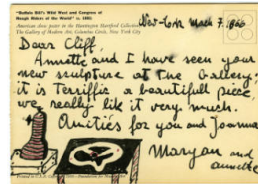 "Buffalo Bill's Wild West and Congress of
Rough Riders of the World" c. 1895
American show poster in the Huntington Hartford Collection
The Gallery of Modern Art, Columbus Circle, New York City
New-York March 7, 1966
Dear Cliff,
Annette and I have seen your
new sculpture at the Gallery.
it is terrific a beautifull piece
we really like it very much.
Amities for you and Joanna
Maryan and
annette
Printed in U.S.A.